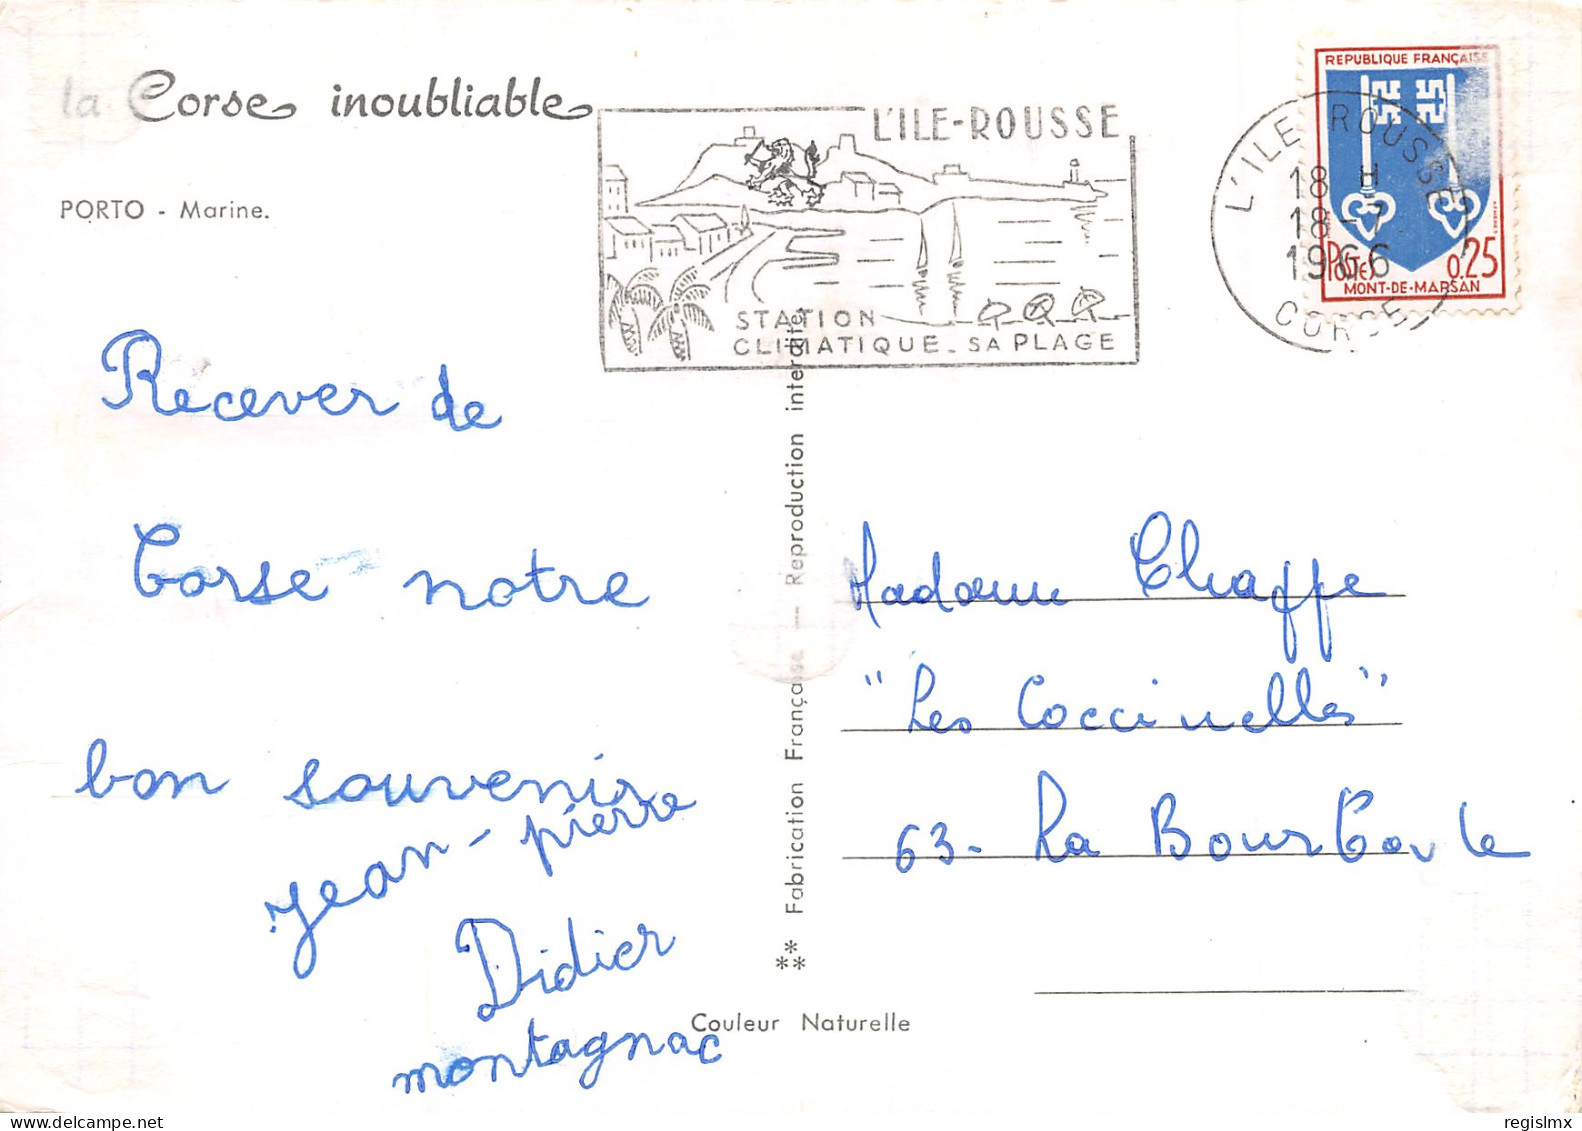 la Corse inoubliable
PORTO - Marine.
L'ILE-ROUSSE
STATION
CLIMATIQUE - SA PLAGE
L'ILE ROUSSE
18 H
18-7
1966
CORSE
REPUBLIQUE FRANÇAISE
Postes
0.25
MONT-DE-MARSAN
Recever de
Corse notre
bon souvenir
jean-pierre
Didier
montagnac
** Fabrication Française — Reproduction interdite
Couleur Naturelle
Madame Chaffe
"Les Coccinelles"
63- La Bourboule
regislmx